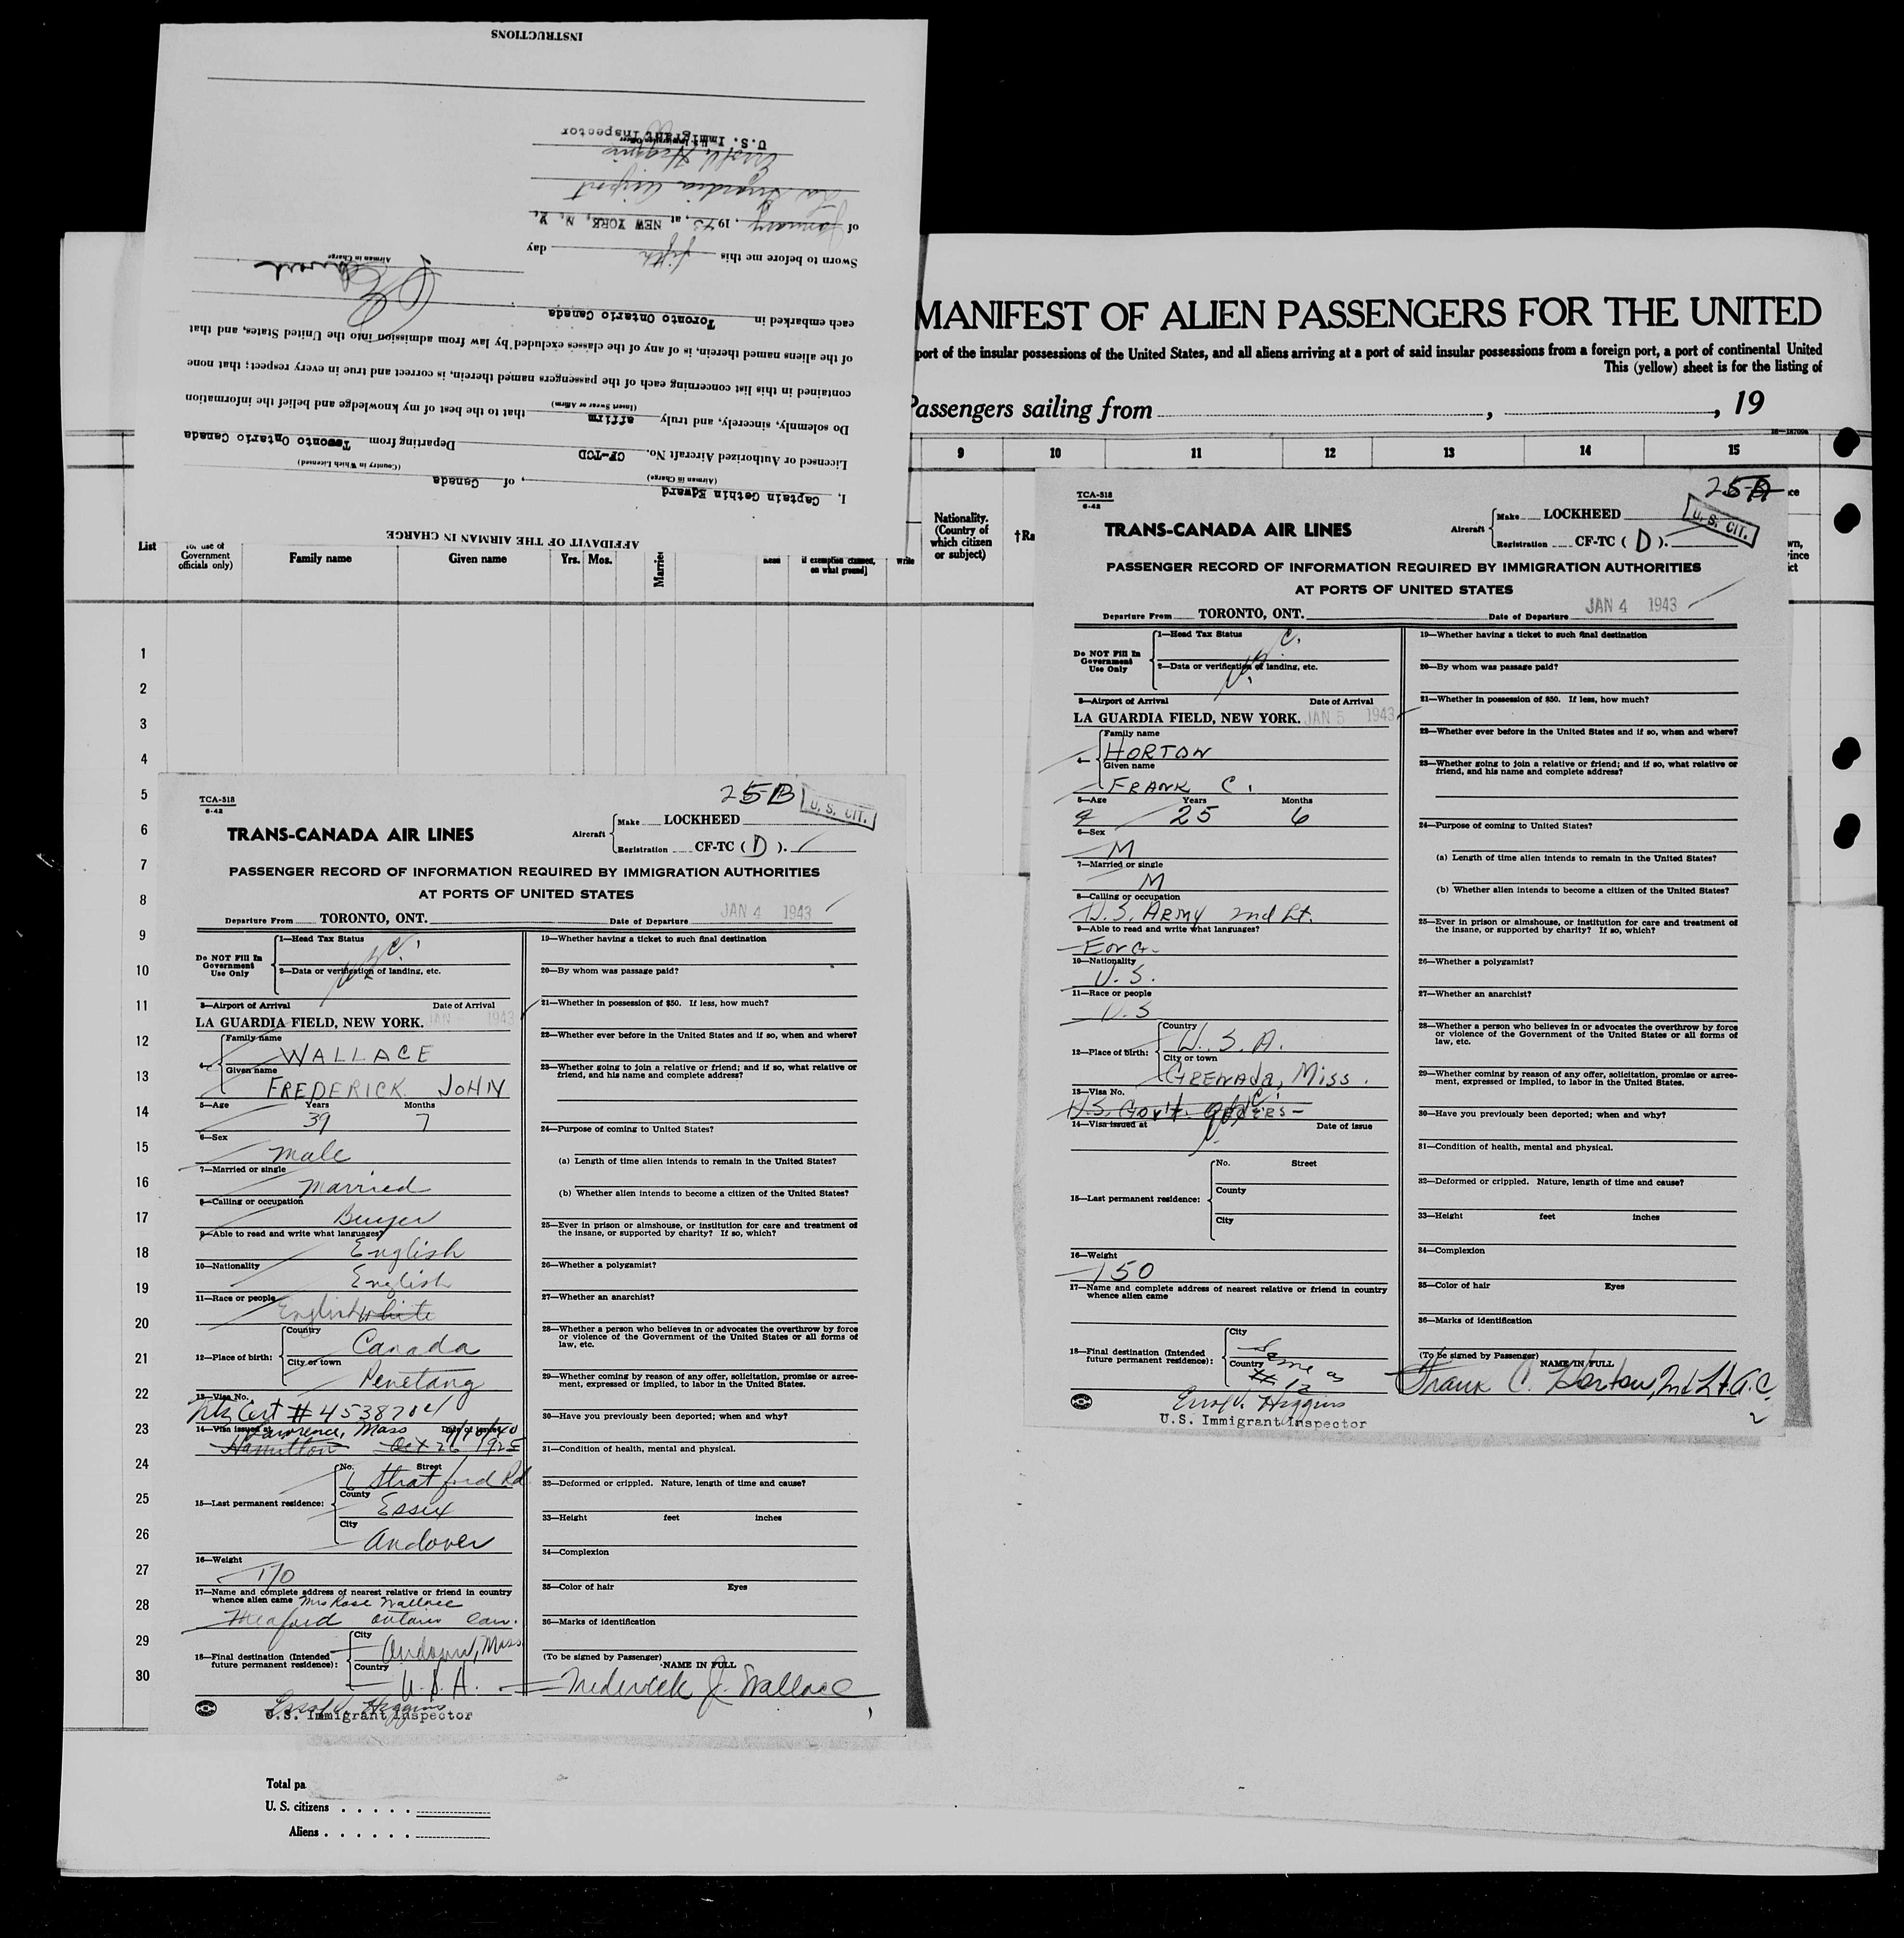 INSTRUCTIONS
U.S. Immigrant Inspector
Errol V. Higgins
La Guardia Airport
of January, 1943, at NEW YORK, N. Y.
Sworn to before me this fifth day
Airman in Charge
each embarked in Toronto Ontario Canada
of the aliens named therein, is of any of the classes excluded by law from admission into the United States, and that
contained in this list concerning each of the passengers named therein, is correct and true in every respect; that none
(Insert Swear or Affirm)
Do solemnly, sincerely, and truly affirm that to the best of my knowledge and belief the information
Licensed or Authorized Aircraft No. CF-TCD Departing from Toronto Ontario Canada
(Airman in Charge) (Country in Which Licensed)
I, Captain Gethin Edward, of Canada
AFFIDAVIT OF THE AIRMAN IN CHARGE
MANIFEST OF ALIEN PASSENGERS FOR THE UNITED
port of the insular possessions of the United States, and all aliens arriving at a port of said insular possessions from a foreign port, a port of continental United
This (yellow) sheet is for the listing of
Passengers sailing from , , 19
9 10 11 12 13 14 15
List
for use of
Government
officials only)
Family name
Given name
Yrs. Mos.
Married
if exemption claimed,
on what ground]
write
Nationality.
(Country of
which citizen
or subject)
†Ra
1
2
3
4
5
6
7
8
9
10
11
12
13
14
15
16
17
18
19
20
21
22
23
24
25
26
27
28
29
30
Total pa
U. S. citizens
Aliens
TCA-518
6-42
25B
U. S. CIT.
TRANS-CANADA AIR LINES
Aircraft
Make LOCKHEED
Registration CF-TC ( D ).
PASSENGER RECORD OF INFORMATION REQUIRED BY IMMIGRATION AUTHORITIES
AT PORTS OF UNITED STATES
Departure From TORONTO, ONT. Date of Departure JAN 4 1943
Do NOT Fill In
Government
Use Only
1—Head Tax Status
2—Data or verification of landing, etc.
3—Airport of Arrival Date of Arrival
LA GUARDIA FIELD, NEW YORK. JAN 1943
4—
Family name
WALLACE
Given name
FREDERICK JOHN
5—Age Years Months
39 7
6—Sex
Male
7—Married or single
Married
8—Calling or occupation
Buyer
9—Able to read and write what languages?
English
10—Nationality
English
11—Race or people
English White
12—Place of birth:
Country
Canada
City or town
Penetang
13—Visa No.
Ntz Cert # 4538704
14—Visa issued at Date of issue
Lawrence, Mass
Hamilton Oct 26 1925
15—Last permanent residence:
No. Street
6 Stratford Rd
County
Essex
City
Andover
16—Weight
170
17—Name and complete address of nearest relative or friend in country
whence alien came Mrs Rose Wallace
Meaford Ontario Can.
18—Final destination (Intended
future permanent residence):
City
Andover, Mass
Country
U.S.A.
Errol V. Higgins
U.S. Immigrant Inspector
19—Whether having a ticket to such final destination
20—By whom was passage paid?
21—Whether in possession of $50. If less, how much?
22—Whether ever before in the United States and if so, when and where?
23—Whether going to join a relative or friend; and if so, what relative or
friend, and his name and complete address?
24—Purpose of coming to United States?
(a) Length of time alien intends to remain in the United States?
(b) Whether alien intends to become a citizen of the United States?
25—Ever in prison or almshouse, or institution for care and treatment of
the insane, or supported by charity? If so, which?
26—Whether a polygamist?
27—Whether an anarchist?
28—Whether a person who believes in or advocates the overthrow by force
or violence of the Government of the United States or all forms of
law, etc.
29—Whether coming by reason of any offer, solicitation, promise or agree-
ment, expressed or implied, to labor in the United States.
30—Have you previously been deported; when and why?
31—Condition of health, mental and physical.
32—Deformed or crippled. Nature, length of time and cause?
33—Height feet inches
34—Complexion
35—Color of hair Eyes
36—Marks of identification
(To be signed by Passenger)
NAME IN FULL
Frederick J. Wallace
TCA-518
6-42
25A
U. S. CIT.
TRANS-CANADA AIR LINES
Aircraft
Make LOCKHEED
Registration CF-TC ( D ).
PASSENGER RECORD OF INFORMATION REQUIRED BY IMMIGRATION AUTHORITIES
AT PORTS OF UNITED STATES
Departure From TORONTO, ONT. Date of Departure JAN 4 1943
Do NOT Fill In
Government
Use Only
1—Head Tax Status
2—Data or verification of landing, etc.
3—Airport of Arrival Date of Arrival
LA GUARDIA FIELD, NEW YORK. JAN 5 1943
4—
Family name
HORTON
Given name
FRANK C.
5—Age Years Months
25 6
6—Sex
M
7—Married or single
M
8—Calling or occupation
U.S. ARMY 2nd Lt.
9—Able to read and write what languages?
ENG.
10—Nationality
U.S.
11—Race or people
U.S
12—Place of birth:
Country
U.S.A.
City or town
GRENADA, MISS.
13—Visa No.
U.S. Gov't. ORDERS-
14—Visa issued at Date of issue
15—Last permanent residence:
No. Street
County
City
16—Weight
150
17—Name and complete address of nearest relative or friend in country
whence alien came
18—Final destination (Intended
future permanent residence):
City
Same as
Country
# 12
Errol V. Higgins
U.S. Immigrant Inspector
19—Whether having a ticket to such final destination
20—By whom was passage paid?
21—Whether in possession of $50. If less, how much?
22—Whether ever before in the United States and if so, when and where?
23—Whether going to join a relative or friend; and if so, what relative or
friend, and his name and complete address?
24—Purpose of coming to United States?
(a) Length of time alien intends to remain in the United States?
(b) Whether alien intends to become a citizen of the United States?
25—Ever in prison or almshouse, or institution for care and treatment of
the insane, or supported by charity? If so, which?
26—Whether a polygamist?
27—Whether an anarchist?
28—Whether a person who believes in or advocates the overthrow by force
or violence of the Government of the United States or all forms of
law, etc.
29—Whether coming by reason of any offer, solicitation, promise or agree-
ment, expressed or implied, to labor in the United States.
30—Have you previously been deported; when and why?
31—Condition of health, mental and physical.
32—Deformed or crippled. Nature, length of time and cause?
33—Height feet inches
34—Complexion
35—Color of hair Eyes
36—Marks of identification
(To be signed by Passenger)
NAME IN FULL
Frank C. Horton, 2nd Lt. A.C.
2